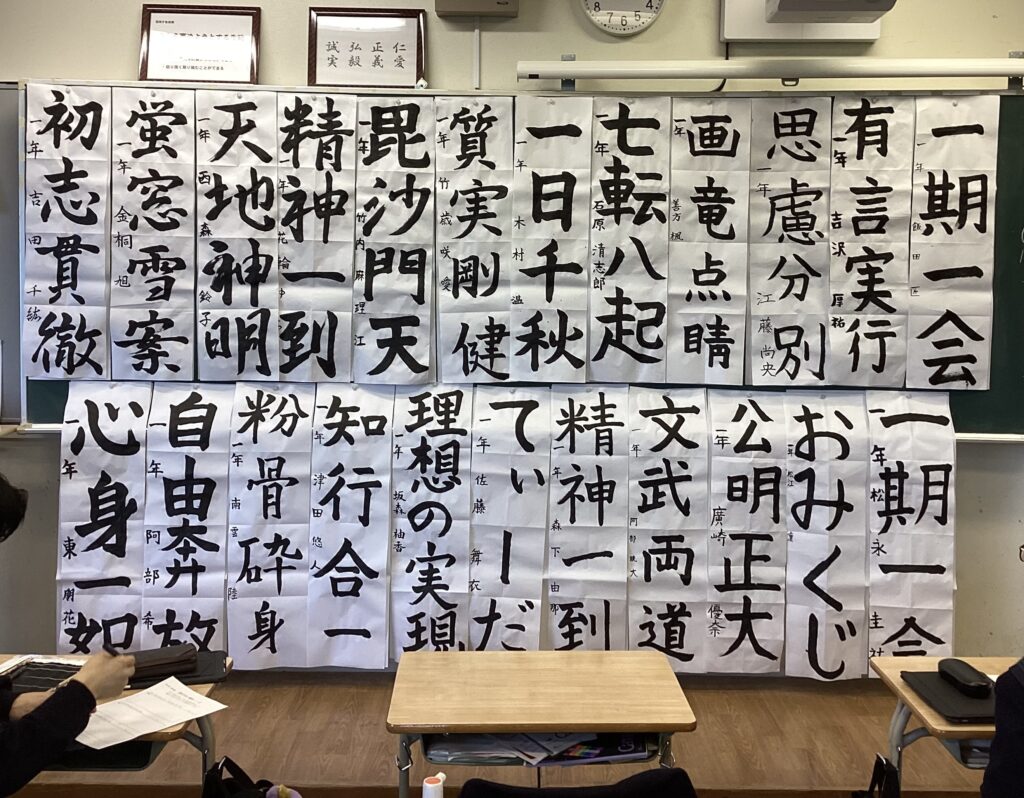 仁愛
正義
弘毅
誠実
一期一会
一年
飯田
有言実行
一年
吉沢
厚祐
思慮分別
一年
江藤尚央
画竜点睛
一年
善方楓
七転八起
一年
石原
清志郎
一日千秋
一年
木村温
質実剛健
一年
竹蔵咲愛
毘沙門天
一年
竹内麻理江
天地神明
一年
西森鈴子
精神一到
一年
蛍窓雪案
一年
金桐旭
初志貫徹
一年
吉田千紘
一期一会
一年
松永圭
おみくじ
一年
松江
公明正大
一年
廣崎
優奈
文武両道
一年
阿部
精神一到
一年
森下由那
てぃーだ
一年
佐藤舞衣
理想の実現
一年
坂森柚香
知行合一
一年
津田悠人
粉骨砕身
一年
南雲陸
自由奔放
一年
阿部希
心身一如
一年
東
花